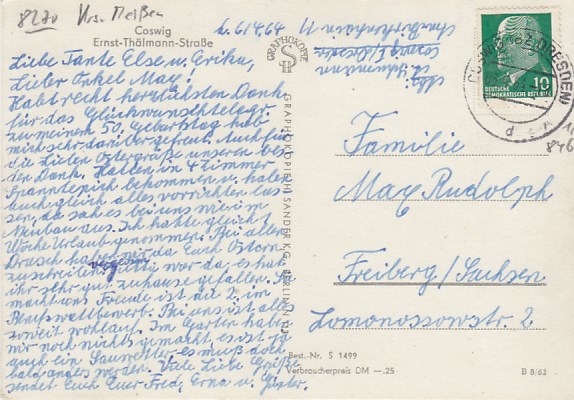 8270 Krs. Meißen
Coswig
Ernst-Thälmann-Straße
d. 6/4.64
Liebe Tante Else u. Erika,
Lieber Onkel Max!
Habt recht herzlichsten Dank
für das Glückwunschtelegr.
zu meinem 50. Geburtstag hab
mich sehr darüber gefreut. Auch für
die lieben Ostergrüße unseren besten
Dank. Hatten in 4 Zimmer
Spannteppich bekommen u. haben
auch gleich alles vorrichten las-
sen, da sah es bei uns wie im
Neubau aus. Ich hatte gleich 1
Woche Urlaub genommen. Bei allen
Drasch haben wir da Euch Ostern
zuschreiben vergessen war da es hat
ihr sehr gut zuhause gefallen.
macht uns Freude ist die 2. im
Berufswettbewerb. Bei uns ist alles
soweit wohlauf. Im Garten haben
wir noch nichts gemacht es ist ja
auch ein Sauwetter es muß doch
bald anders werden. Viele Liebe Grüße
sendet Euch Euer Fred, Erna u.
GRAPHOKOPIE
H S
GRAPHOKOPIE HANS SANDER K.G. BERLIN
Abs:
Coswig
COSWIG (BZ DRESDEN)
d
10
DEUTSCHE
DEMOKRATISCHE REPUBLIK
Familie
Max Rudolph
Freiberg/Sachsen
Lomonossowstr. 2
Best.-Nr. S 1499
Verbraucherpreis DM —.25
B 8/62